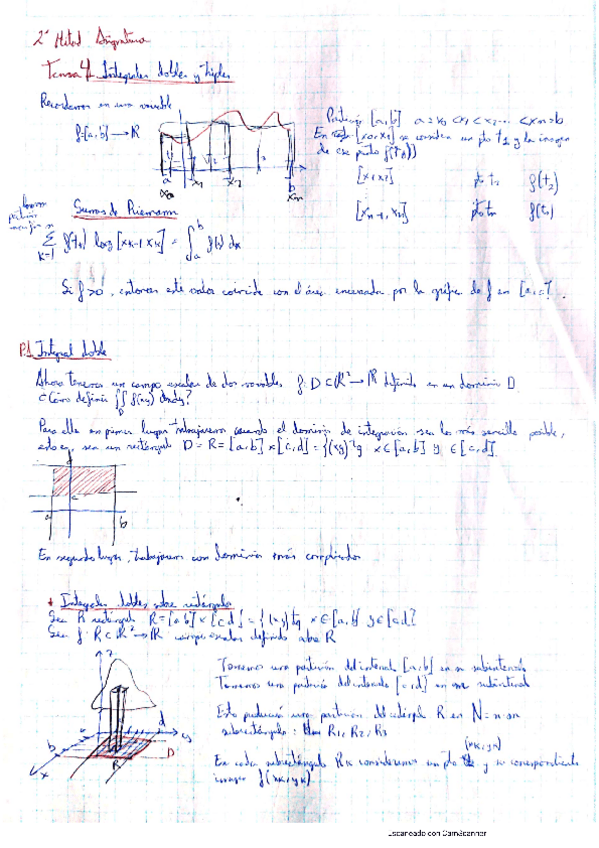 2ª Mitad Asignatura
Tema 4 Integrales dobles y triples
Recordemos en una variable
f:[a,b] → R
a x₀ x₁ x₂ b xₙ
Partición [a,b] a = x₀ < x₁ < x₂ ... < xₙ = b
En cada [x₀,x₁] se considera un pto t₁ y la imagen
de ese punto f(t₁)
[x₁,x₂] pto t₂ f(t₂)
pto tₙ
Sumas de Riemann
Si f>0, entonces este valor coincide con el área encerrada por la gráfica de f en
P.1 Integral doble
Ahora tenemos un campo escalar de dos variables f: D ⊂ R² → R definido en un dominio D
¿Cómo definir ∬ f(x,y) dxdy?
D
Para ello en primer lugar trabajaremos cuando el dominio de integración sea lo más sencillo posible,
esto es, sea un rectángulo D = R = [a,b] x [c,d] = {(x,y) tq x ∈ [a,b] y ∈ [c,d]
d
c
a b
En segundo lugar, trabajaremos con dominios más complicados
* Integrales dobles sobre rectángulos
Sea R rectángulo R = [a,b] x [c,d] = {(x,y) tq x ∈ [a,b] y ∈ [c,d]
Sea f: R ⊂ R² → R campo escalar definido sobre R
z
c d y
a b x
R D
Tenemos una partición del intervalo [a,b] en n subintervalos
Tenemos una partición del intervalo [c,d] en m subintervalos
Esto produce una partición del rectángulo R en N = n·m
subrectángulos: R₁, R₂, R₃
En cada subrectángulo Rₖ consideramos un pto (xₖ,yₖ) y su correspondiente
imagen f(xₖ,yₖ)
Escaneado con CamScanner